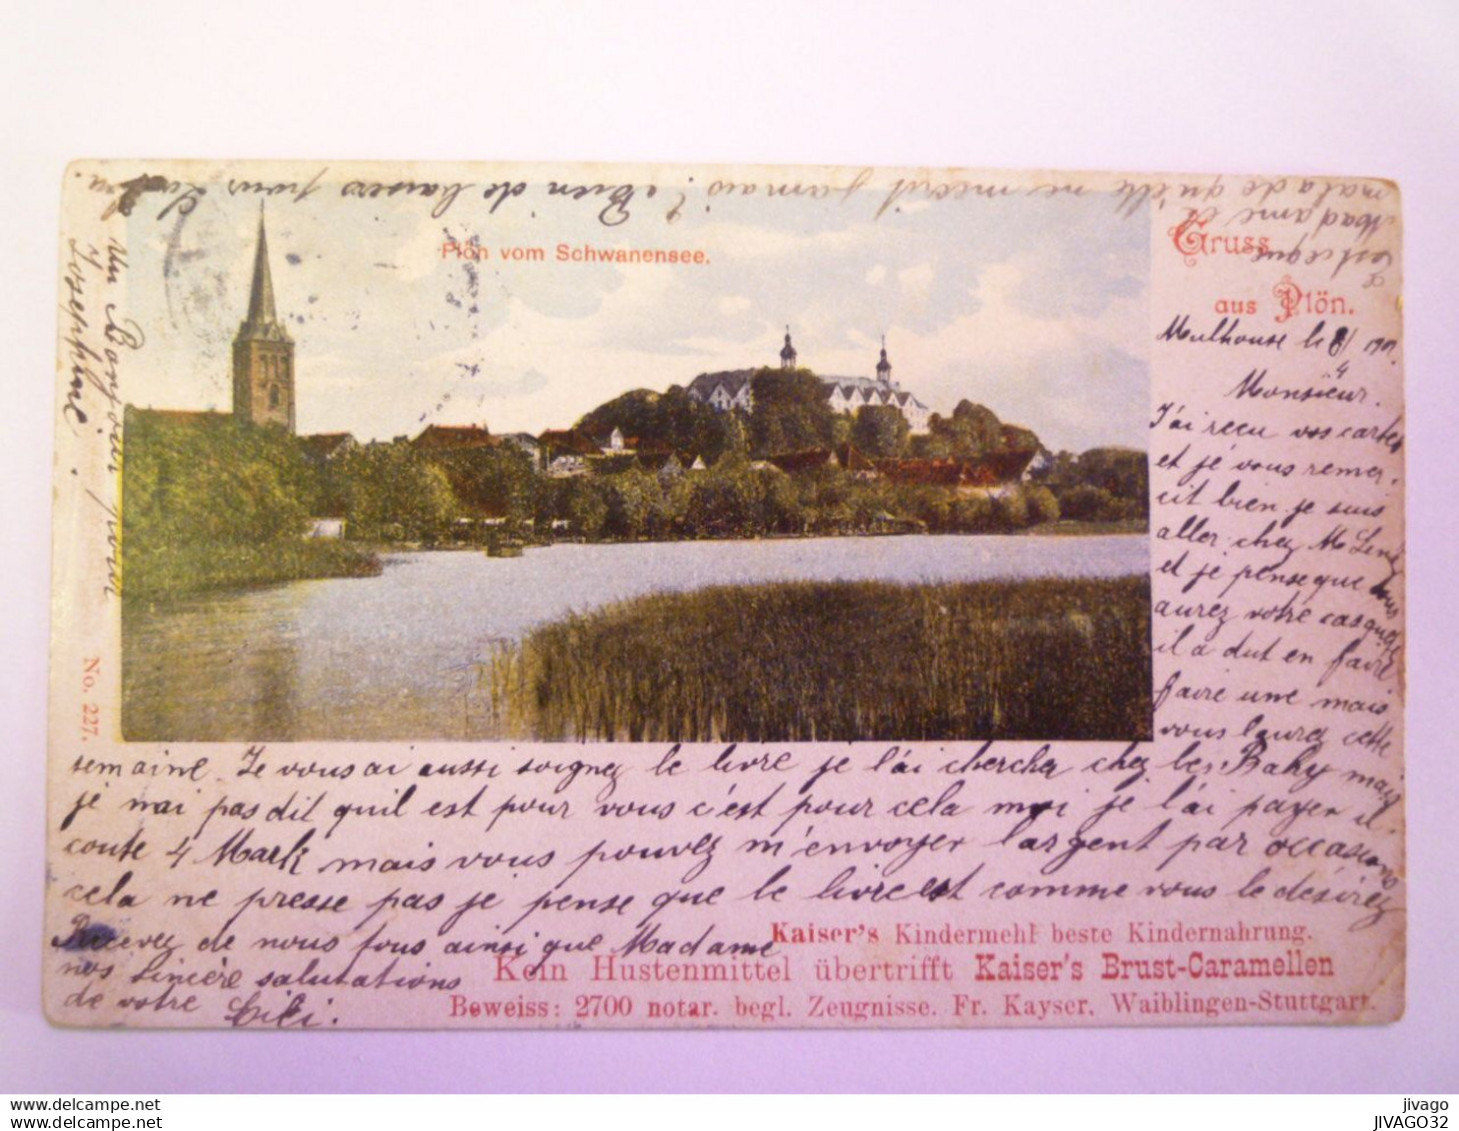 Plön vom Schwanensee.
Gruss
aus Plön.
Mulhouse le 8/4 1901
Monsieur.
J'ai reçu vos cartes
et je vous remer.
cit bien je suis
aller chez M
et je pense que vous
aurez votre casquette
il a dut en faire
faire une mais
vous l'aurez cette
semaine. Je vous ai aussi soignez le livre je l'ai chercher chez les Bahy mais
je n'ai pas dit quil est pour vous c'est pour cela moi je l'ai payer il
coute 4 Mark mais vous pouvez m'envoyer l'argent par occasions
cela ne presse pas je pense que le livre est comme vous le désirez
Recevez de nous tous ainsi que Madame
nos sincère salutations
de votre Cili.
Est ce que
Madame
malade qu'elle ne m'écrit jamais! Bien de baisers pour
Un Bonjour pour
Josephine.
No. 227.
Kaiser's Kindermehl beste Kindernahrung.
Kein Hustenmittel übertrifft Kaiser's Brust-Caramellen
Beweiss: 2700 notar. begl. Zeugnisse. Fr. Kayser, Waiblingen-Stuttgart.
www.delcampe.net
www.delcampe.net
jivago
JIVAGO32